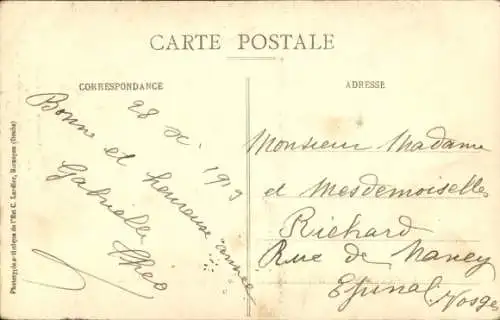 CARTE POSTALE
CORRESPONDANCE
ADRESSE
28 X 1919
Bonne et heureuse année
Gabrielle Théo
Monsieur Madame
et Mesdemoiselles
Richard
Rue de Nancy
Epinal
Vosges
Phototypie artistique de l'Hel C. Lardier, Besançon (Doubs)